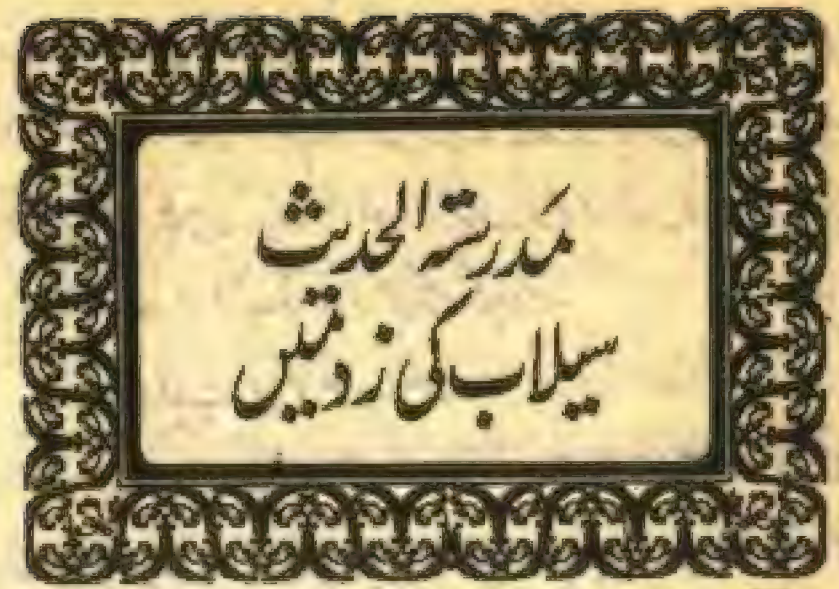 مَدرستہ الحدیث
سیلاب کی زد میں